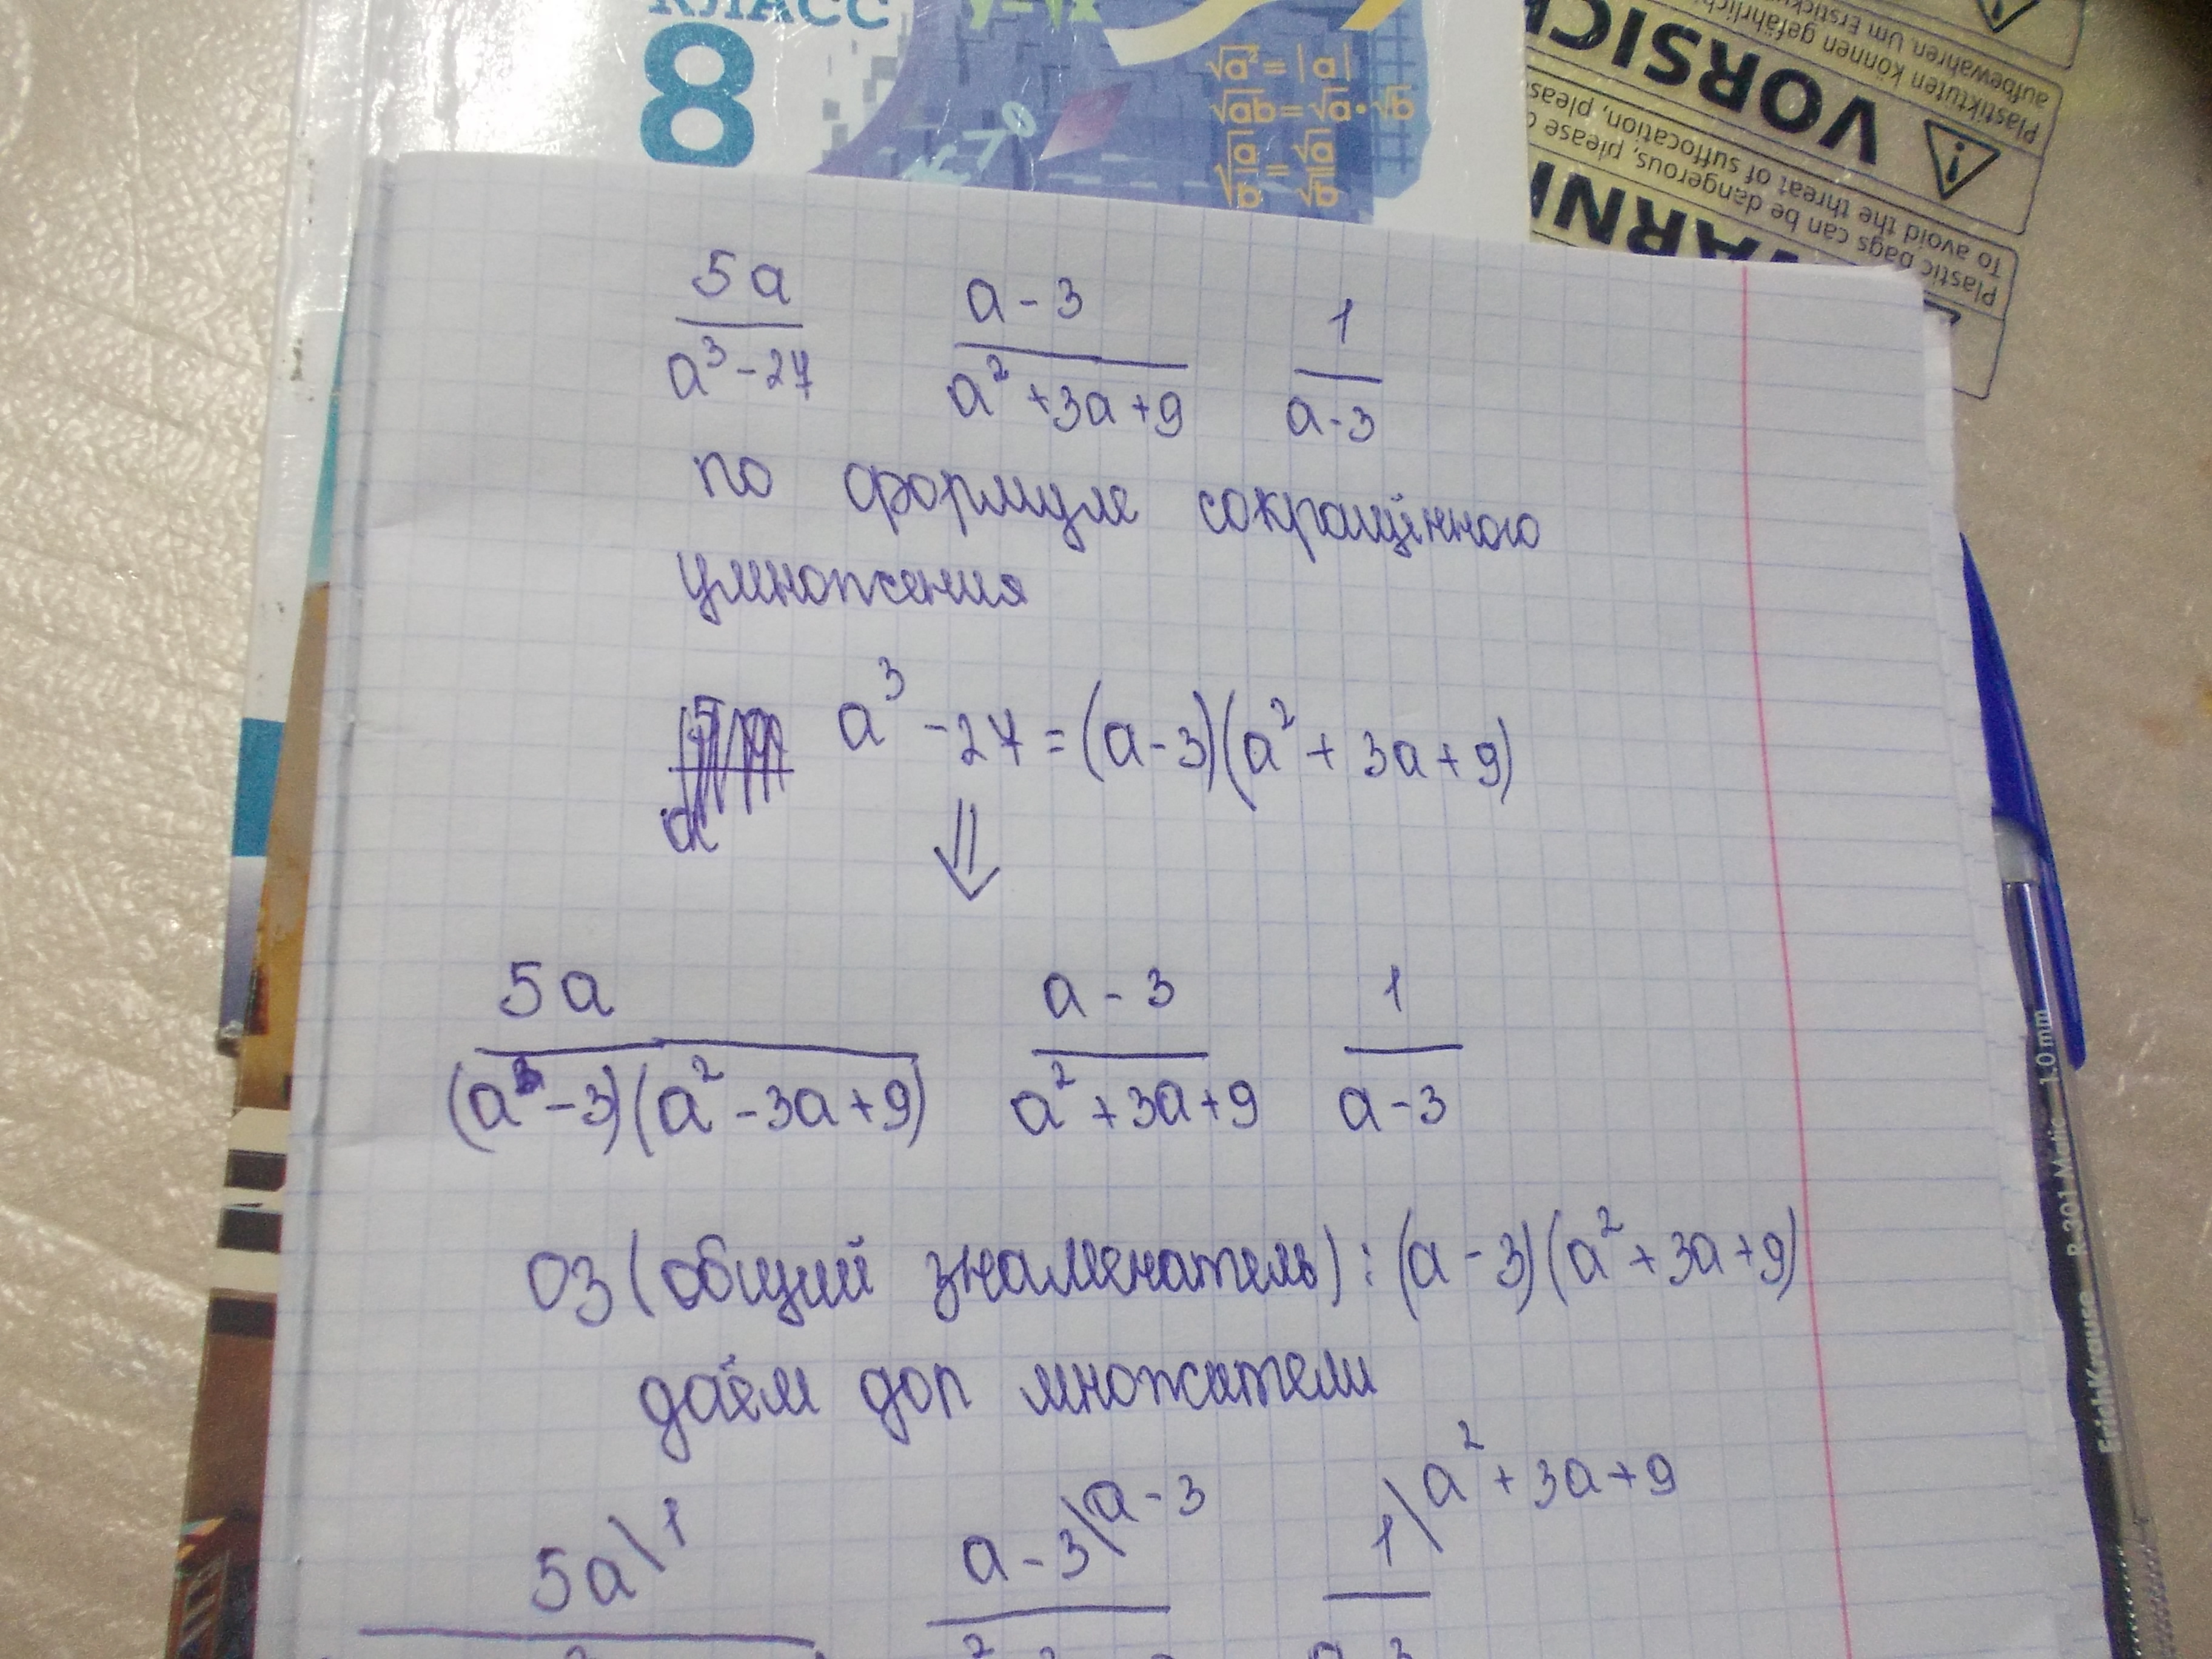 КЛАСС
8
y=√x
√a²=|a|
√ab=√a·√b
√a/b=√a/√b
VORSICH
Plastiktüten können gefährlich
aufbewahren. Um Erstick
WARN
Plastic bags can be dangerous, please
To avoid the threat of suffocation, pleas
5a/(a³-27) (a-3)/(a²+3a+9) 1/(a-3)
по формуле сокращённого
умножения
a³-27=(a-3)(a²+3a+9)
⇓
5a/((a³-3)(a²-3a+9)) (a-3)/(a²+3a+9) 1/(a-3)
ОЗ (общий знаменатель): (a-3)(a²+3a+9)
даём доп множители
5a\1 a-3\a-3 1\a²+3a+9
ErichKrause R-301 1.0 mm